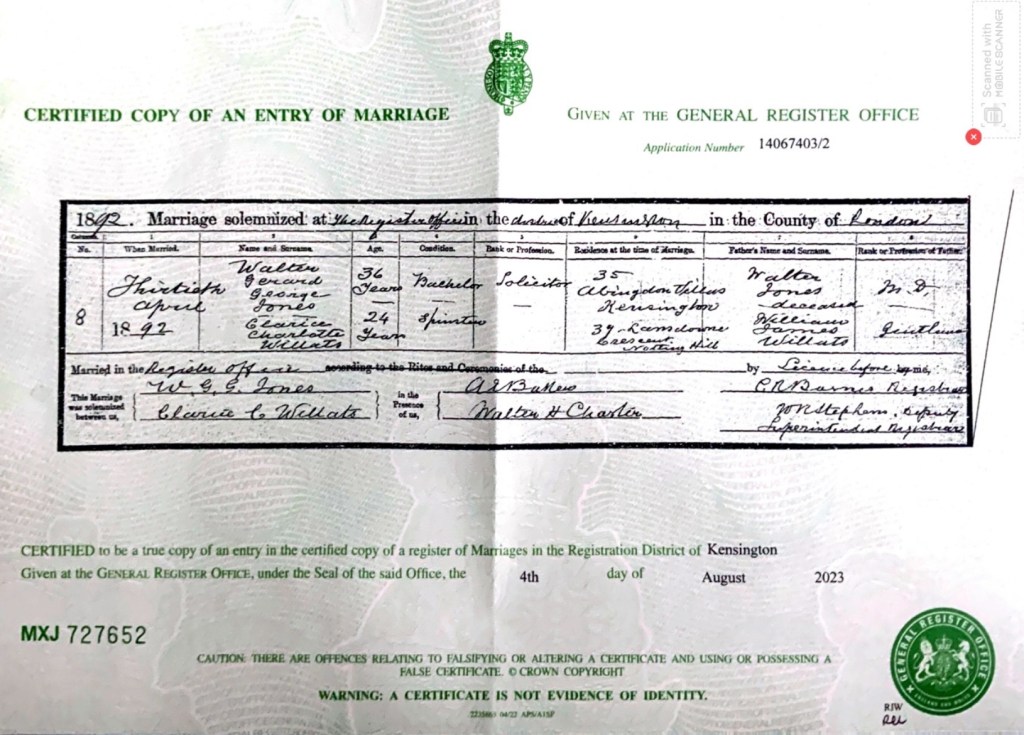 Scanned with
MOBILE SCANNER
CERTIFIED COPY OF AN ENTRY OF MARRIAGE
GIVEN AT THE GENERAL REGISTER OFFICE
Application Number 14067403/2
1892. Marriage solemnized at The Register Office in the district of Kensington in the County of London
No. When Married. Name and Surname. Age. Condition. Rank or Profession. Residence at the time of Marriage. Father's Name and Surname. Rank or Profession of Father.
8
Thirtieth
April
1892
Walter
Gerard
George
Jones
36
Years
Bachelor
Solicitor
35
Abingdon Villas
Kensington
Walter
Jones
deceased
M.D.
Clarice
Charlotte
Willats
24
Years
Spinster
—
39 Lansdowne
Crescent
Notting Hill
William
James
Willats
Gentleman
Married in the Register Office according to the Rites and Ceremonies of the by Licence before by me,
This Marriage
was solemnized
between us,
W. G. G. Jones
Clarice C Willats
in the
Presence
of us,
Walter H
Registrar
W R Stephens, Deputy
Superintendent Registrar
CERTIFIED to be a true copy of an entry in the certified copy of a register of Marriages in the Registration District of Kensington
Given at the GENERAL REGISTER OFFICE, under the Seal of the said Office, the 4th day of August 2023
MXJ 727652
CAUTION: THERE ARE OFFENCES RELATING TO FALSIFYING OR ALTERING A CERTIFICATE AND USING OR POSSESSING A
FALSE CERTIFICATE. © CROWN COPYRIGHT
WARNING: A CERTIFICATE IS NOT EVIDENCE OF IDENTITY.
04/22 APS/A15F
GENERAL REGISTER OFFICE
ENGLAND AND WALES
RJW